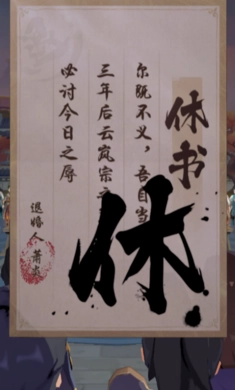 休书
尔既不义，吾自当
三年后云岚宗
必讨今日之辱
退婚人
萧炎
休